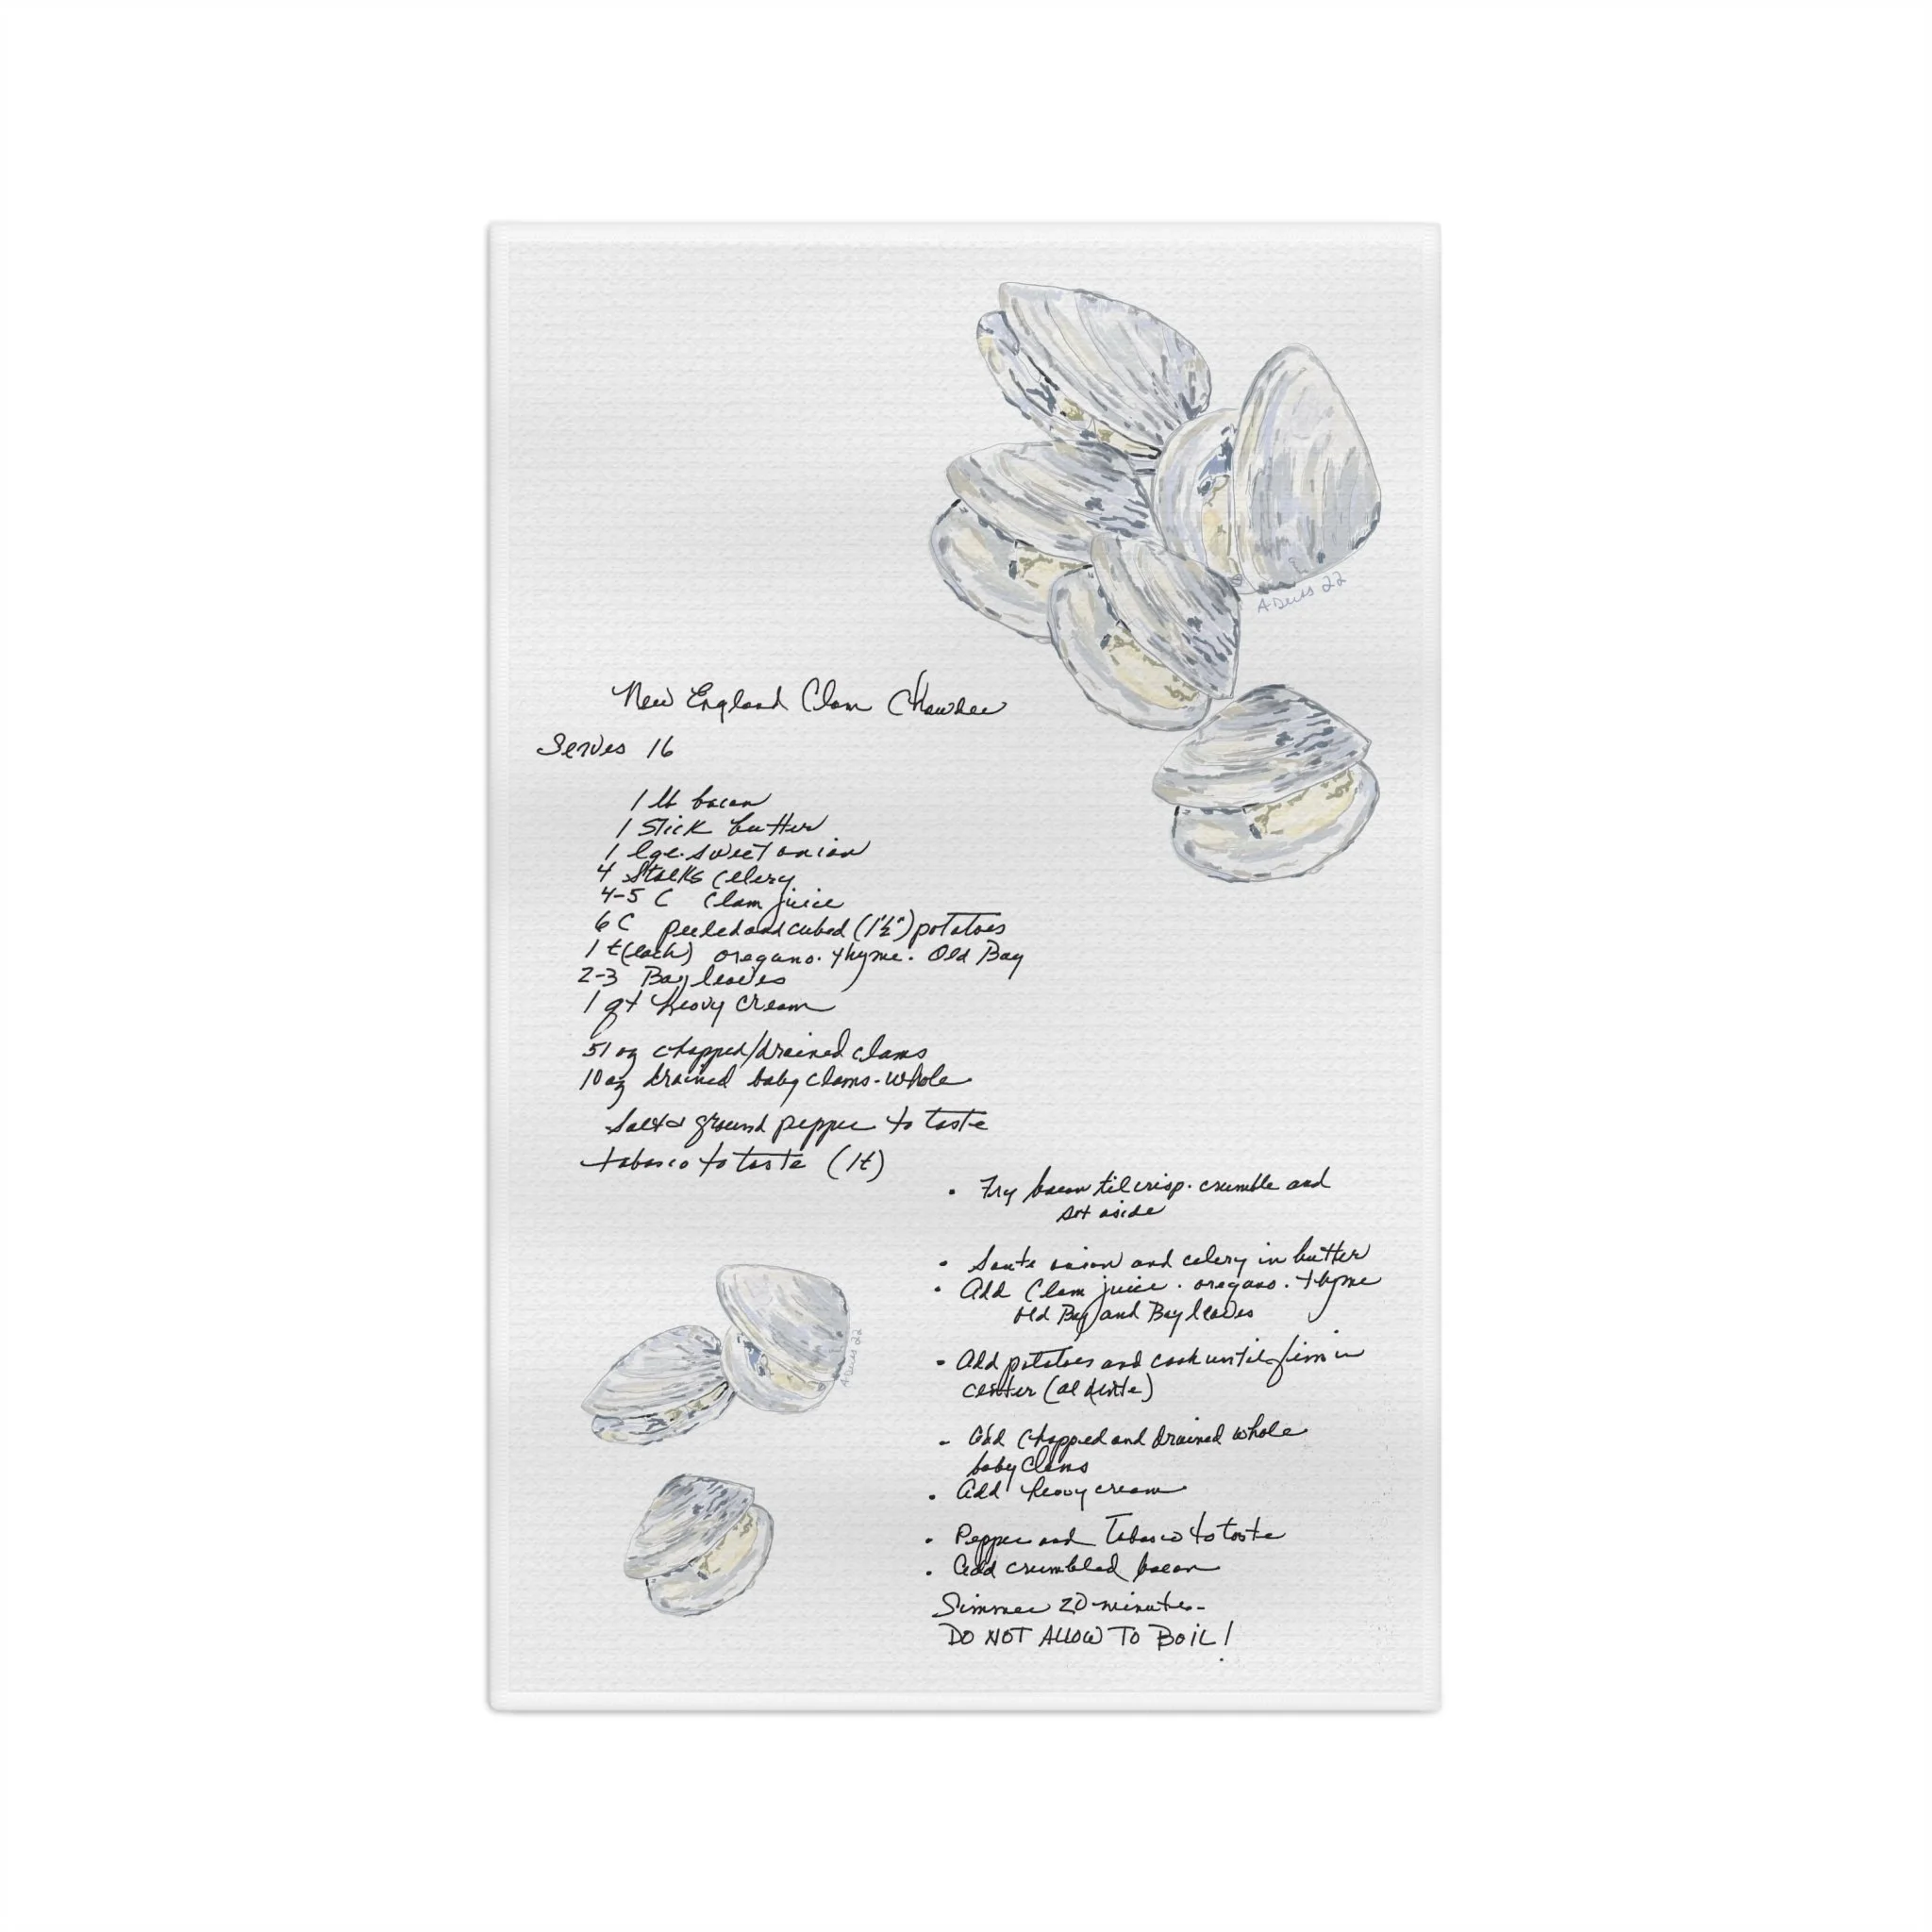 New England Clam Chowder
Serves 16
1 lb bacon
1 stick butter
1 lge. sweet onion
4 stalks celery
4-5 C clam juice
6 C peeled and cubed (1½") potatoes
1 t (each) oregano. thyme. Old Bay
2-3 Bay leaves
1 qt heavy cream
51 oz chopped/drained clams
10 oz drained baby clams - whole
Salt & ground pepper to taste
tabasco to taste (1t)
• Fry bacon til crisp. crumble and
set aside
• Saute onion and celery in butter
• Add Clam juice . oregano . thyme
Old Bay and Bay leaves
• Add potatoes and cook until firm in
center (al dente)
- Add chopped and drained whole
baby clams
• Add heavy cream
• Pepper and Tabasco to taste
• Add crumbled bacon
Simmer 20 minutes -
DO NOT ALLOW TO BOIL!
22
22